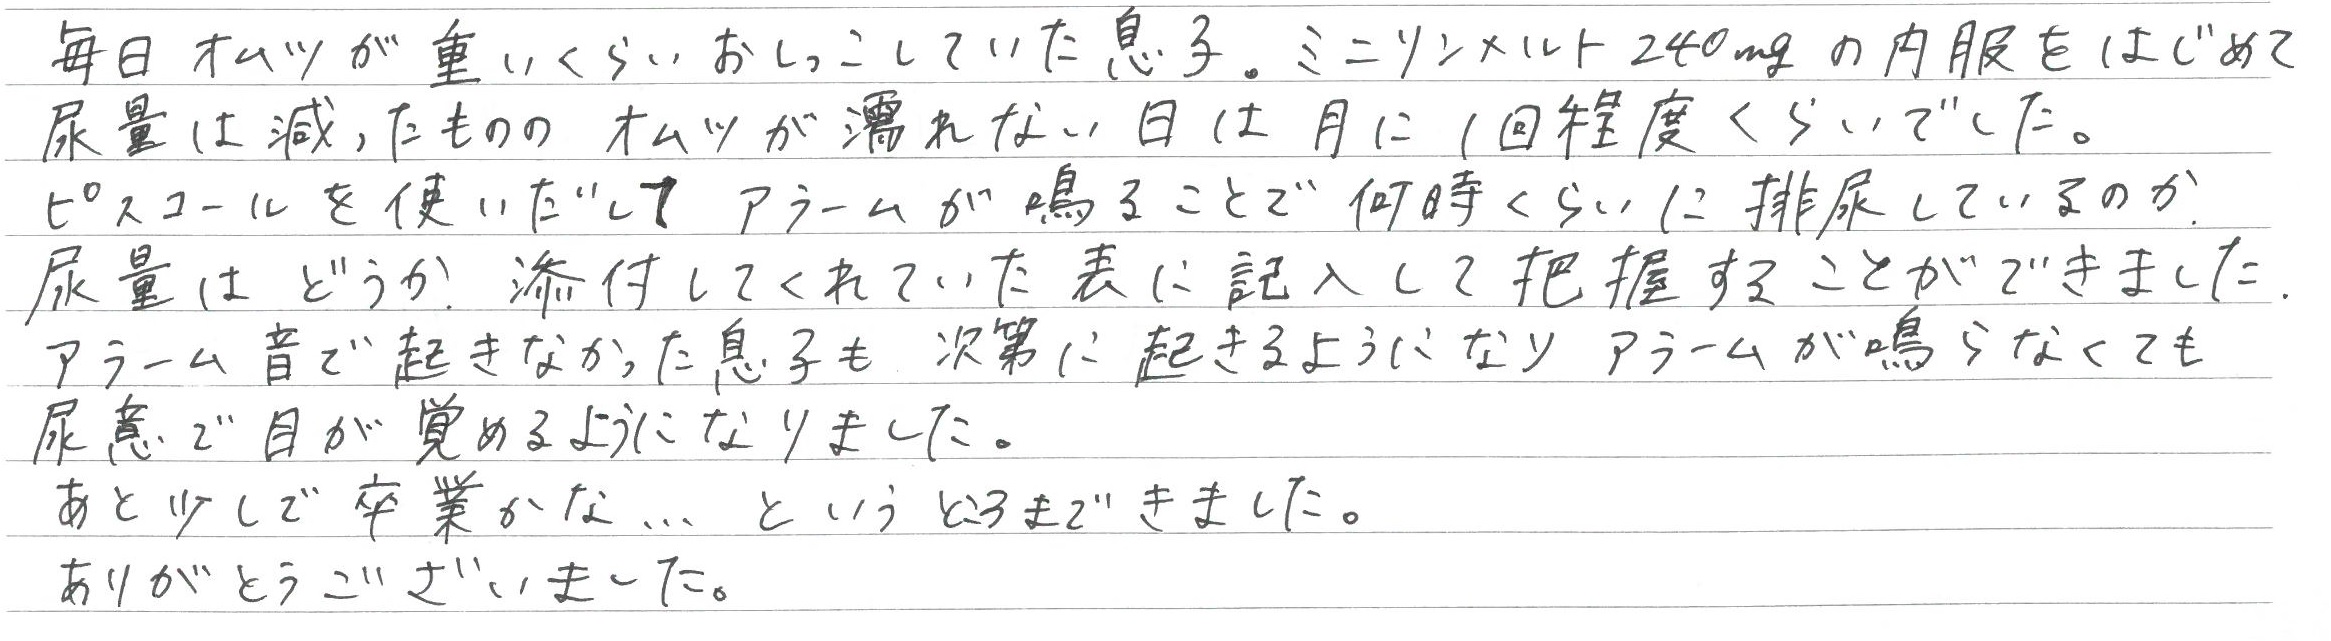 毎日オムツが重いくらいおしっこしていた息子。ミニリンメルト240mgの内服をはじめて
尿量は減ったものの オムツが濡れない日は月に1回程度くらいでした。
ピスコールを使いだして アラームが鳴ることで何時くらいに排尿しているのか、
尿量はどうか、添付してくれていた表に記入して把握することができました。
アラーム音で起きなかった息子も 次第に起きるようになり アラームが鳴らなくても
尿意で目が覚めるようになりました。
あと少しで卒業かな… というところまできました。
ありがとうございました。